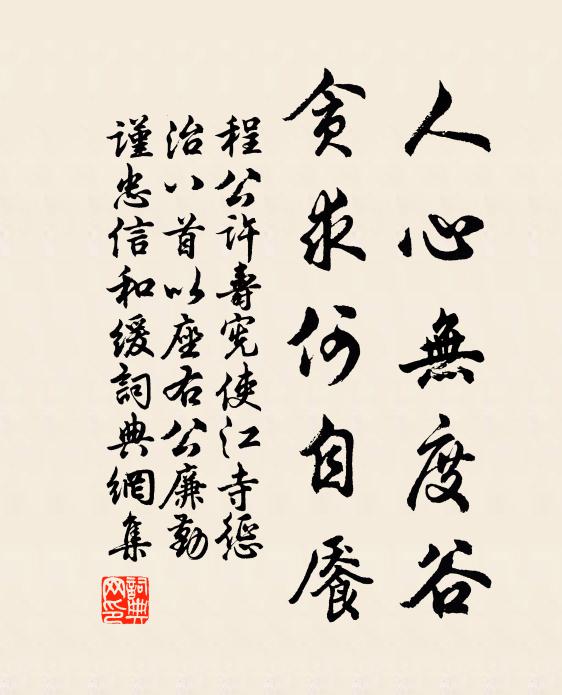 人心無度谷
貪求何自饜
程公許壽宪使江寺丞
治八首以座右公廉勤
謹忠信和緩詞典網集